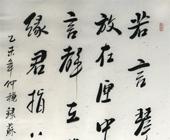 若言琴
放在匣中
言聲在
緣君指
乙未年仲穐録蘇